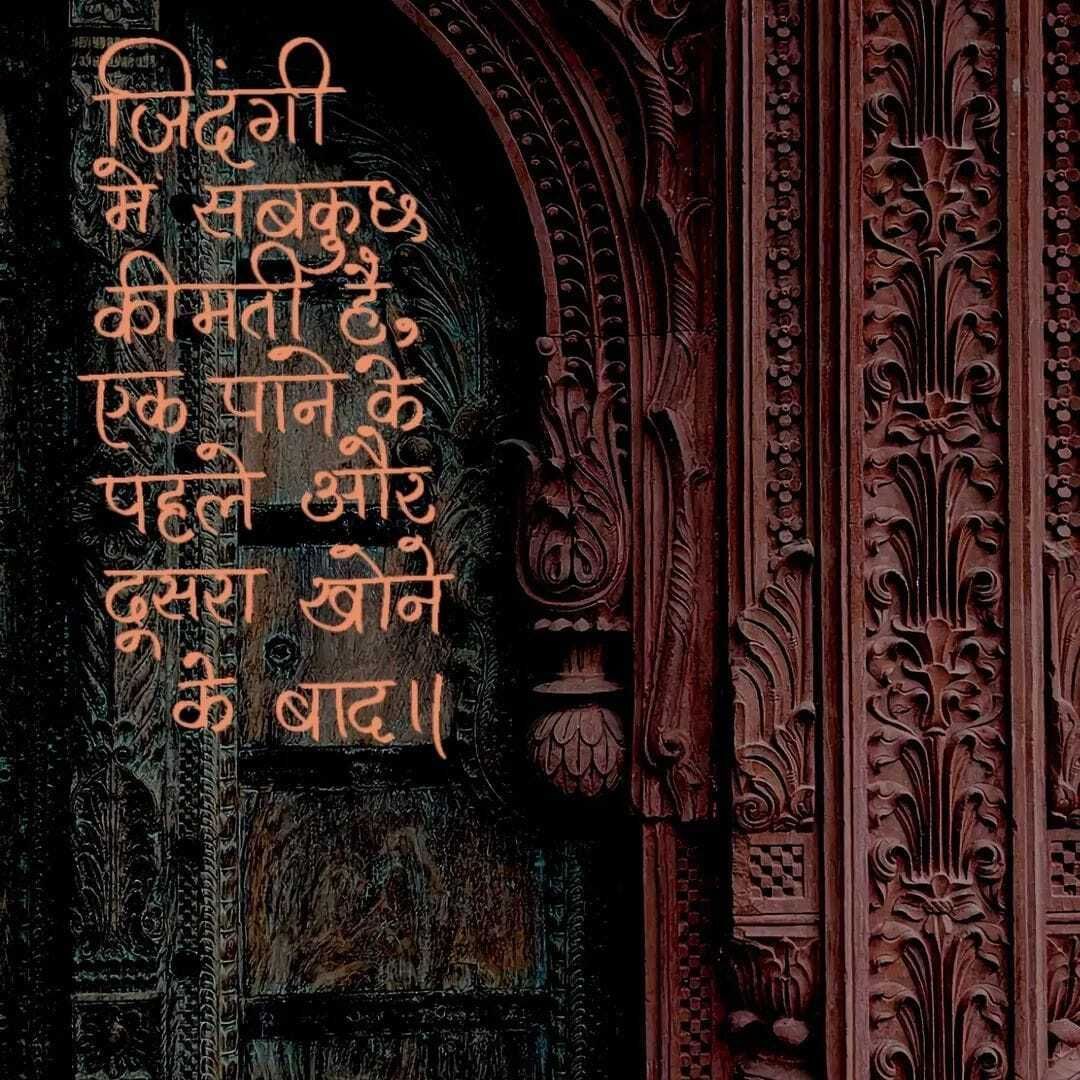 जिंदगी
में सबकुछ
कीमती है,
एक पाने के
पहले और
दूसरा खोने
के बाद॥